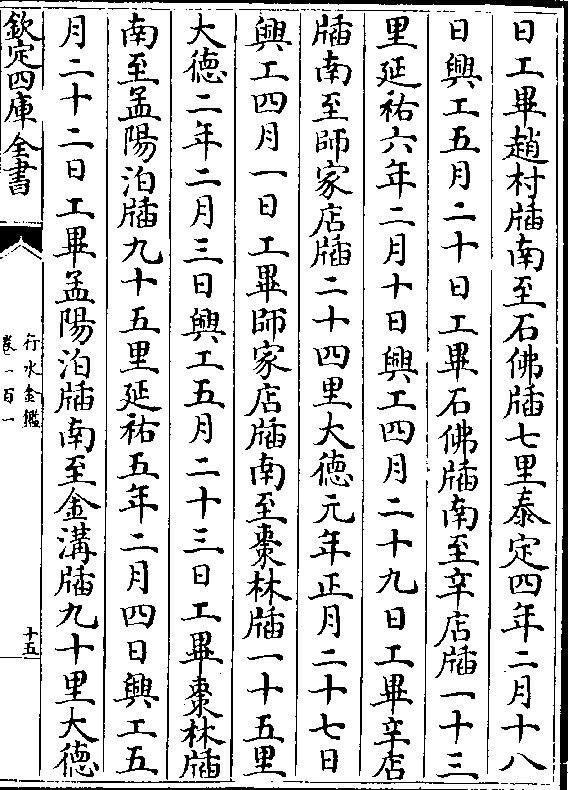 日工畢趙村牐南至石佛牐七里泰定四年二月十八
日興工五月二十日工畢石佛牐南至辛店牐一十三
里延祐六年二月十日興工四月二十九日工畢辛店
牐南至師家店牐二十四里大德元年正月二十七日
興工四月一日工畢師家店牐南至棗林牐一十五里
大德二年二月三日興工五月二十三日工畢棗林牐
南至孟陽泊牐九十五里延祐五年二月四日興工五
月二十二日工畢孟陽泊牐南至金溝牐九十里大德
欽定四庫全書
行水金鑑
卷一百一
十五